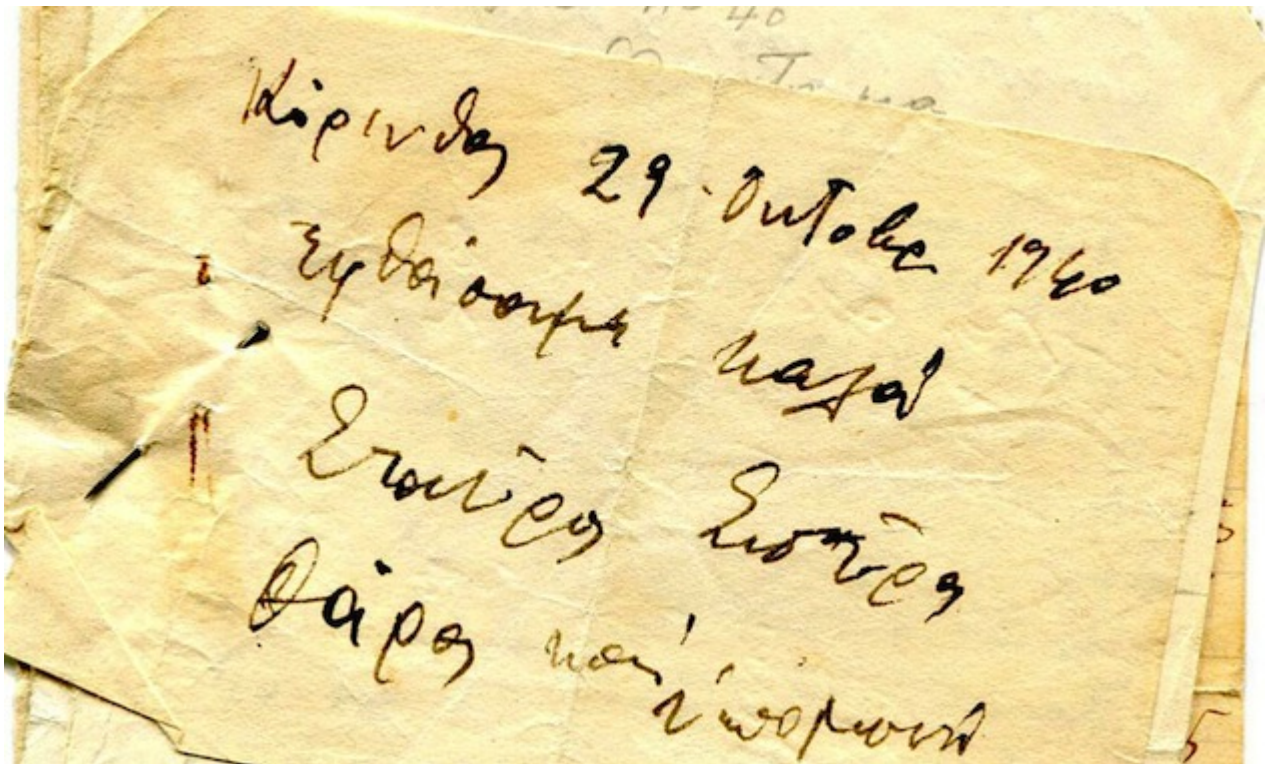 Κόρινθος 29 Οκτοβρ 1940
Ἐφθάσαμε καλά
Σταῦρος
Θάρος καί
ὑπομονή